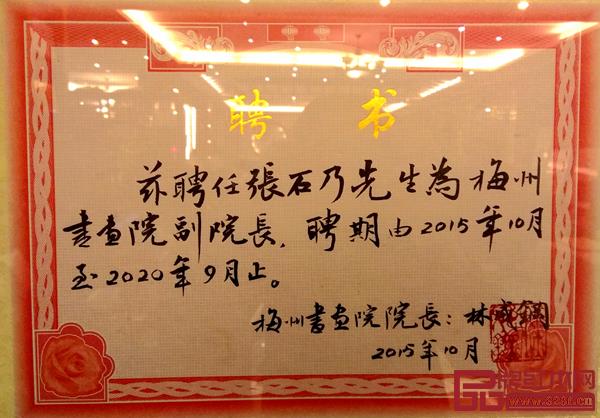 聘 书
兹聘任張石乃先生為梅州
書畫院副院長，聘期由2015年10月
至2020年9月止。
梅州書畫院院長：林
2015年10月
www.328f.cn